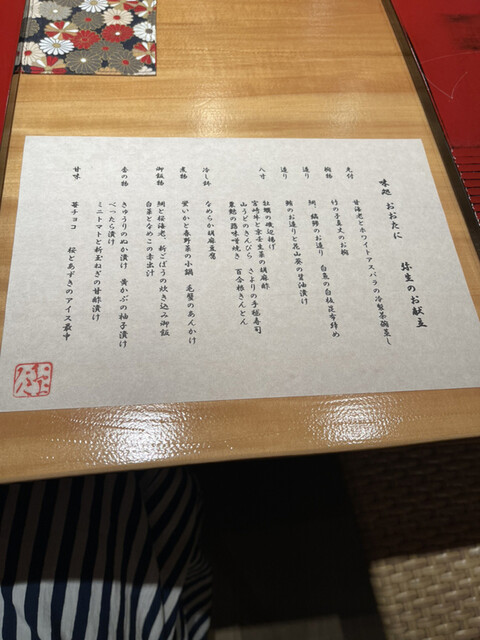 味処 おおたに 弥生のお献立
先付 甘海老とホワイトアスパラの冷製茶碗蒸し
椀物 竹の子真丈のお椀
造り 鯛、鰤のお造り 白魚の白板昆布締め
造り 鮪のお造りと花山葵の醤油漬け
八寸 牡蠣の磯辺揚げ
宮崎牛と京壬生菜の胡麻酢
山うどのきんぴら さよりの手毬寿司
裏鮑の蕗味噌焼き 百合根きんとん
冷し鉢 なめらか胡麻豆腐
煮物 蛍いかと春野菜の小鍋 毛蟹のあんかけ
御飯物 鯛と桜海老、新ごぼうの炊き込み御飯
白菜となめこの赤出汁
香の物 きゅうりのぬか漬け 黄かぶの柚子漬け
べったら漬け
ミニトマトと新玉ねぎの甘酢漬け
甘味 苺チョコ 桜とあずきのアイス最中